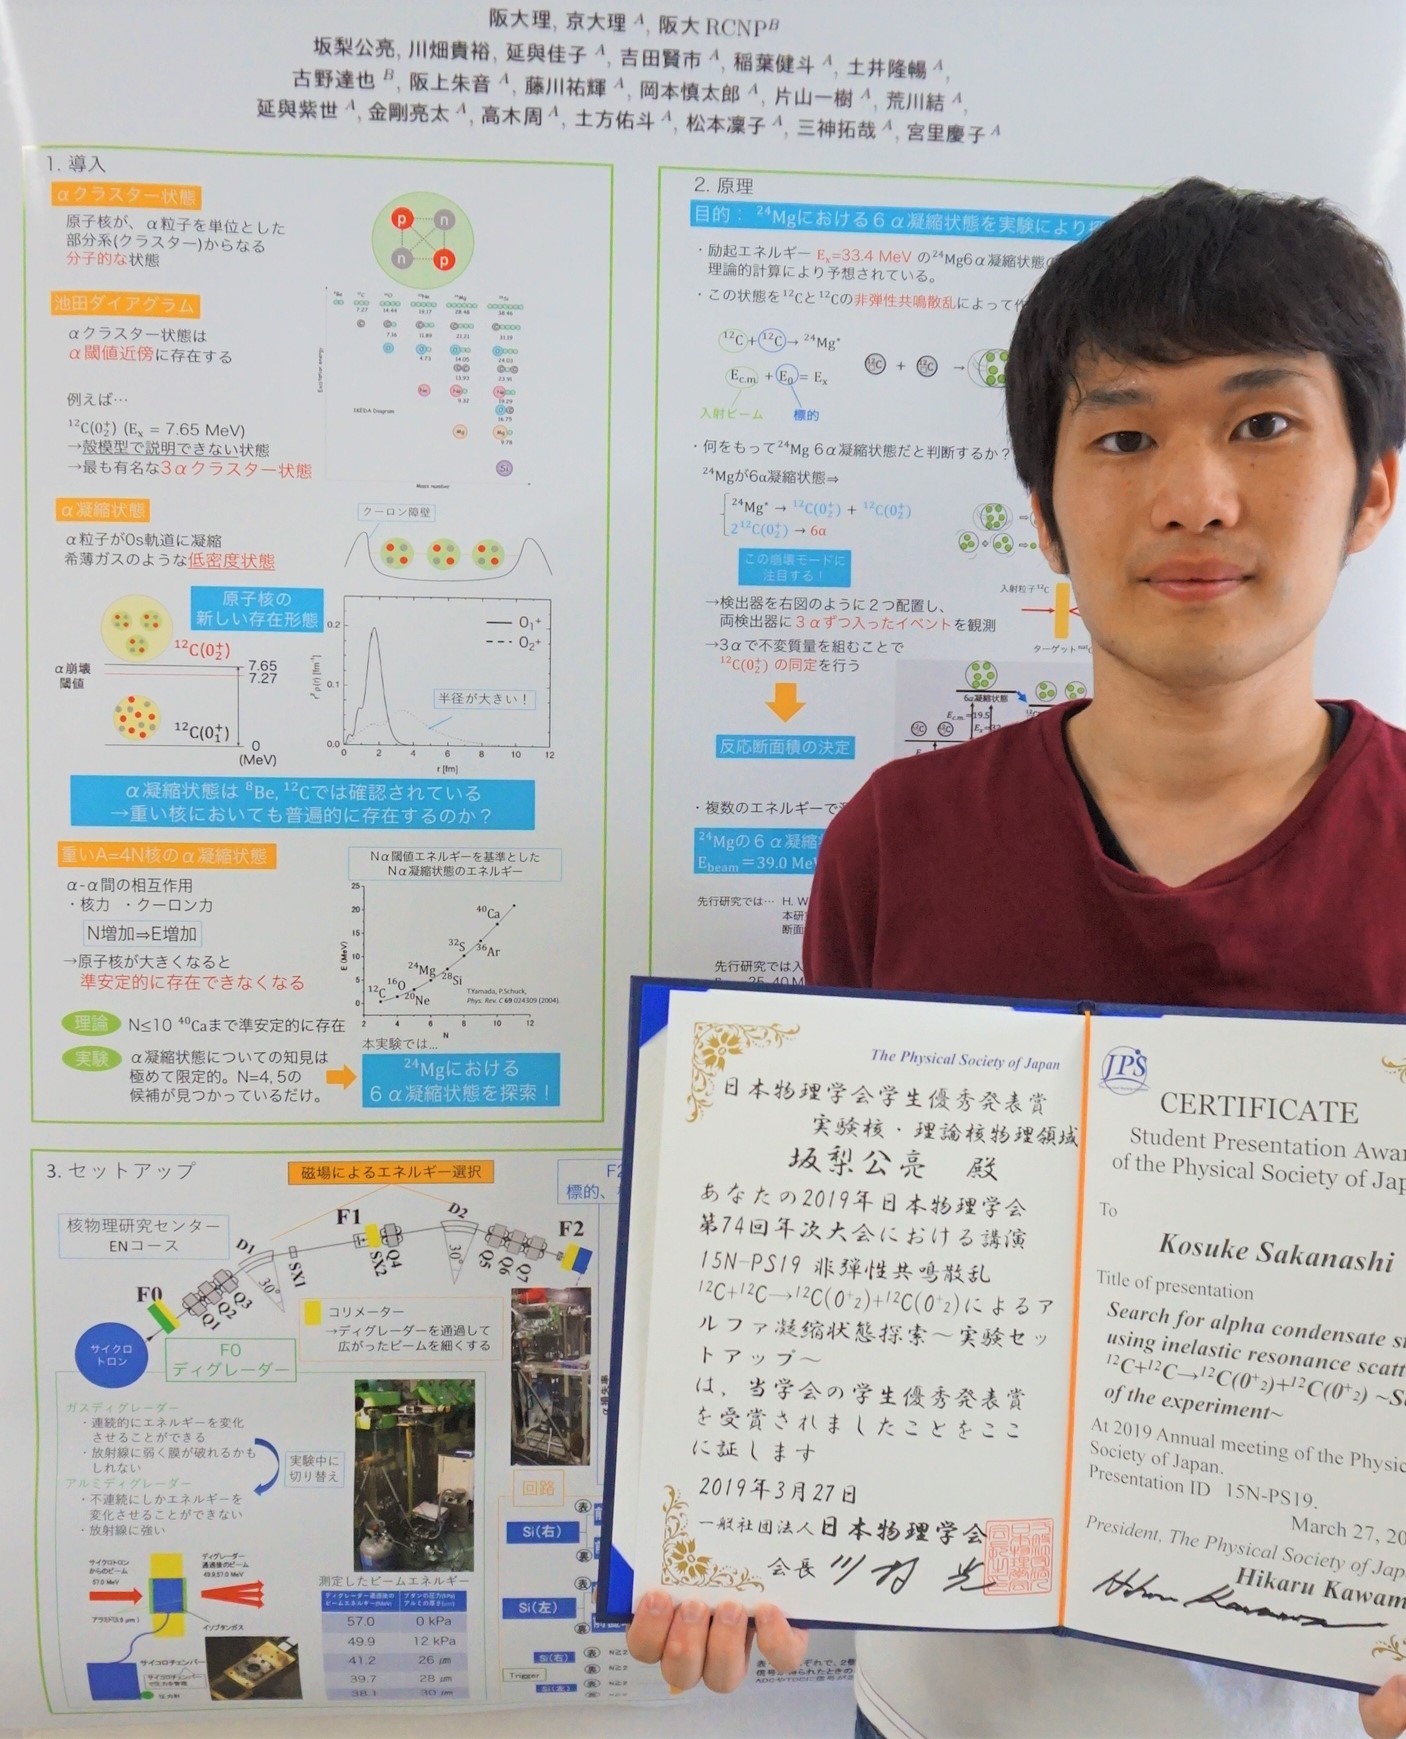 阪大理, 京大理 A, 阪大 RCNP B
坂梨公亮, 川畑貴裕, 延與佳子 A, 吉田賢市 A, 稲葉健斗 A, 土井隆暢 A,
古野達也 B, 阪上朱音 A, 藤川祐輝 A, 岡本慎太郎 A, 片山一樹 A, 荒川結 A,
延與紫世 A, 金剛亮太 A, 高木周 A, 土方佑斗 A, 松本凜子 A, 三神拓哉 A, 宮里慶子 A
1. 導入
αクラスター状態
原子核が、α粒子を単位とした
部分系(クラスター)からなる
分子的な状態
p n
n p
池田ダイアグラム
αクラスター状態は
α閾値近傍に存在する
例えば…
¹²C(0₂⁺) (Eₓ = 7.65 MeV)
→殻模型で説明できない状態
→最も有名な3αクラスター状態
IKEDA Diagram
Mass number
α凝縮状態
クーロン障壁
α粒子が0s軌道に凝縮
希薄ガスのような低密度状態
原子核の
新しい存在形態
¹²C(0₂⁺)
α崩壊
閾値
7.65
7.27
¹²C(0₁⁺)
0
(MeV)
0.2
0.1
0.0
O₁⁺
O₂⁺
半径が大きい！
0 2 4 6 8 10 12
r [fm]
α凝縮状態は ⁸Be, ¹²Cでは確認されている
→重い核においても普遍的に存在するのか？
重いA=4N核のα凝縮状態
α-α間の相互作用
・核力 ・クーロン力
N増加⇒E増加
→原子核が大きくなると
準安定的に存在できなくなる
Nα閾値エネルギーを基準とした
Nα凝縮状態のエネルギー
E (MeV)
25
20
15
10
5
0
¹²C ¹⁶O ²⁰Ne ²⁴Mg ²⁸Si ³²S ³⁶Ar ⁴⁰Ca
T.Yamada, P.Schuck,
Phys. Rev. C 69 024309 (2004).
2 4 6 8 10 12
N
理論 N≤10 ⁴⁰Caまで準安定的に存在
実験 α凝縮状態についての知見は
極めて限定的。N=4, 5の
候補が見つかっているだけ。
本実験では…
²⁴Mgにおける
6α凝縮状態を探索！
2. 原理
目的： ²⁴Mgにおける６α凝縮状態を実験により
・励起エネルギー Eₓ=33.4 MeV の²⁴Mg6α凝縮状態
理論的計算により予想されている。
・この状態を¹²Cと¹²Cの非弾性共鳴散乱によって
¹²C+¹²C→ ²⁴Mg*
E_c.m + E₀ = Eₓ
入射ビーム 標的
・何をもって²⁴Mg 6α凝縮状態だと判断するか？
²⁴Mgが6α凝縮状態⇒
²⁴Mg* → ¹²C(0₂⁺) + ¹²C(0₂⁺)
2¹²C(0₂⁺) → 6α
この崩壊モードに
注目する！
→検出器を右図のように２つ配置し、
両検出器に３αずつ入ったイベントを観測
→3αで不変質量を組むことで
¹²C(0₂⁺) の同定を行う
入射粒子¹²C
ターゲット
6α凝縮状態
反応断面積の決定
・複数のエネルギーで
²⁴Mgの６α凝縮
E_beam = 39.0 MeV
先行研究では… H. W
断面
先行研究では
3. セットアップ
磁場によるエネルギー選択
標的、
核物理研究センター
ENコース
F0 Q1 Q2 Q3 D1 30° SX1 F1 SX2 Q4 D2 30° Q5 Q6 Q7 F2
サイクロ
トロン
F0
ディグレーダー
コリメーター
→ディグレーダーを通過して
広がったビームを細くする
ガスディグレーダー
・連続的にエネルギーを変化
させることができる
・放射線に弱く膜が破れるかも
しれない
アルミディグレーダー
・不連続にしかエネルギーを
変化させることができない
・放射線に強い
実験中に
切り替え
サイクロトロン
からのビーム
57.0 MeV
ディグレーダー
通過後のビーム
イソブタンガス
サイコロチェンバー
測定したビームエネルギー
57.0 0 kPa
49.9 12 kPa
41.2 26 μm
39.7 28 μm
38.1 30 μm
回路
Si(右) 表
裏
Si(左) 表
裏
Si(右) 表
裏
Trigger
Si(左) 表
裏
The Physical Society of Japan
日本物理学会学生優秀発表賞
実験核・理論核物理領域
坂梨公亮 殿
あなたの2019年日本物理学会
第74回年次大会における講演
15N-PS19 非弾性共鳴散乱
¹²C+¹²C→¹²C(0⁺₂)+¹²C(0⁺₂)によるア
ルファ凝縮状態探索〜実験セッ
トアップ〜
は、当学会の学生優秀発表賞
を受賞されましたことをここ
に証します
2019年3月27日
一般社団法人日本物理学会
会長 川村 光
JPS
CERTIFICATE
Student Presentation Awar
of the Physical Society of Jap
To
Kosuke Sakanashi
Title of presentation
Search for alpha condensate st
using inelastic resonance scatt
¹²C+¹²C→¹²C(0⁺₂)+¹²C(0⁺₂) ~S
of the experiment~
At 2019 Annual meeting of the Physic
Society of Japan.
Presentation ID 15N-PS19.
March 27, 20
President, The Physical Society of Jap
Hikaru Kawam